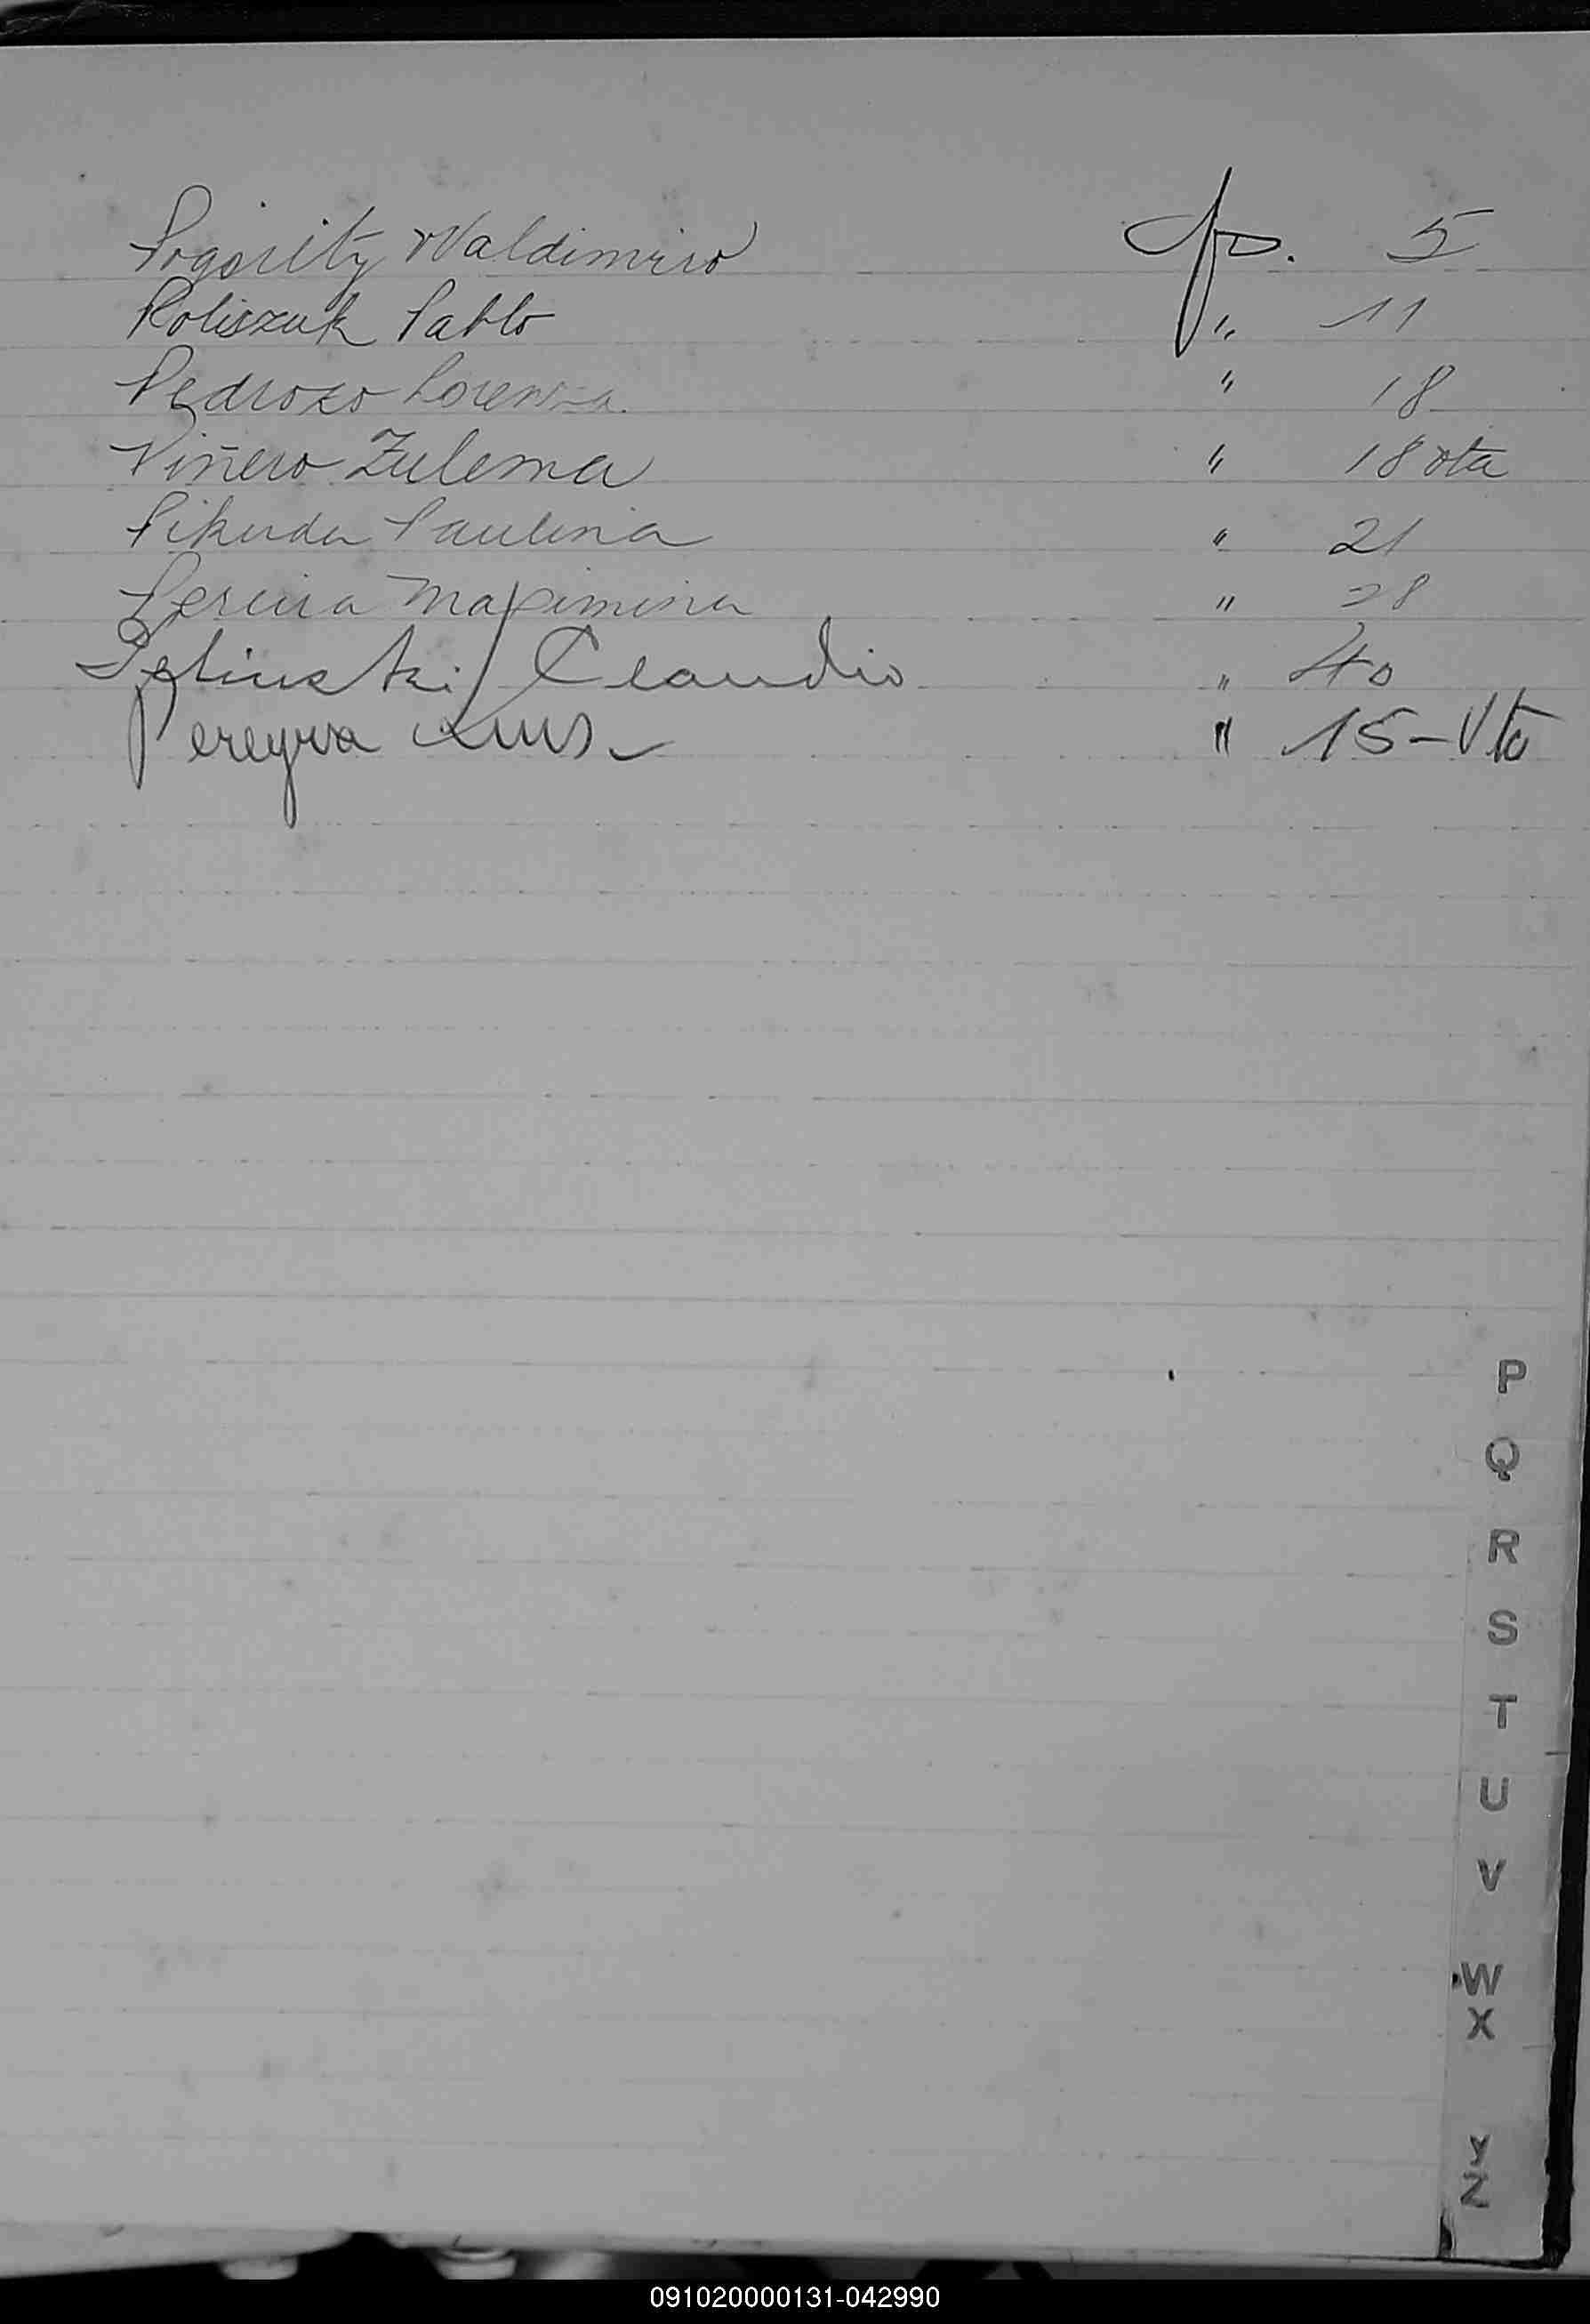 Pogority Waldimiro fp. 5
Poliszuk Pablo " 11
Pedrozo Lorenza " 18
Piñero Zulema " 18 vta
Pikuda Paulina " 21
Pereira Maximina " 28
Pelinski Claudio " 40
Pereyra Luis " 15-Vto
P
Q
R
S
T
U
V
W
X
Y
Z
091020000131-042990